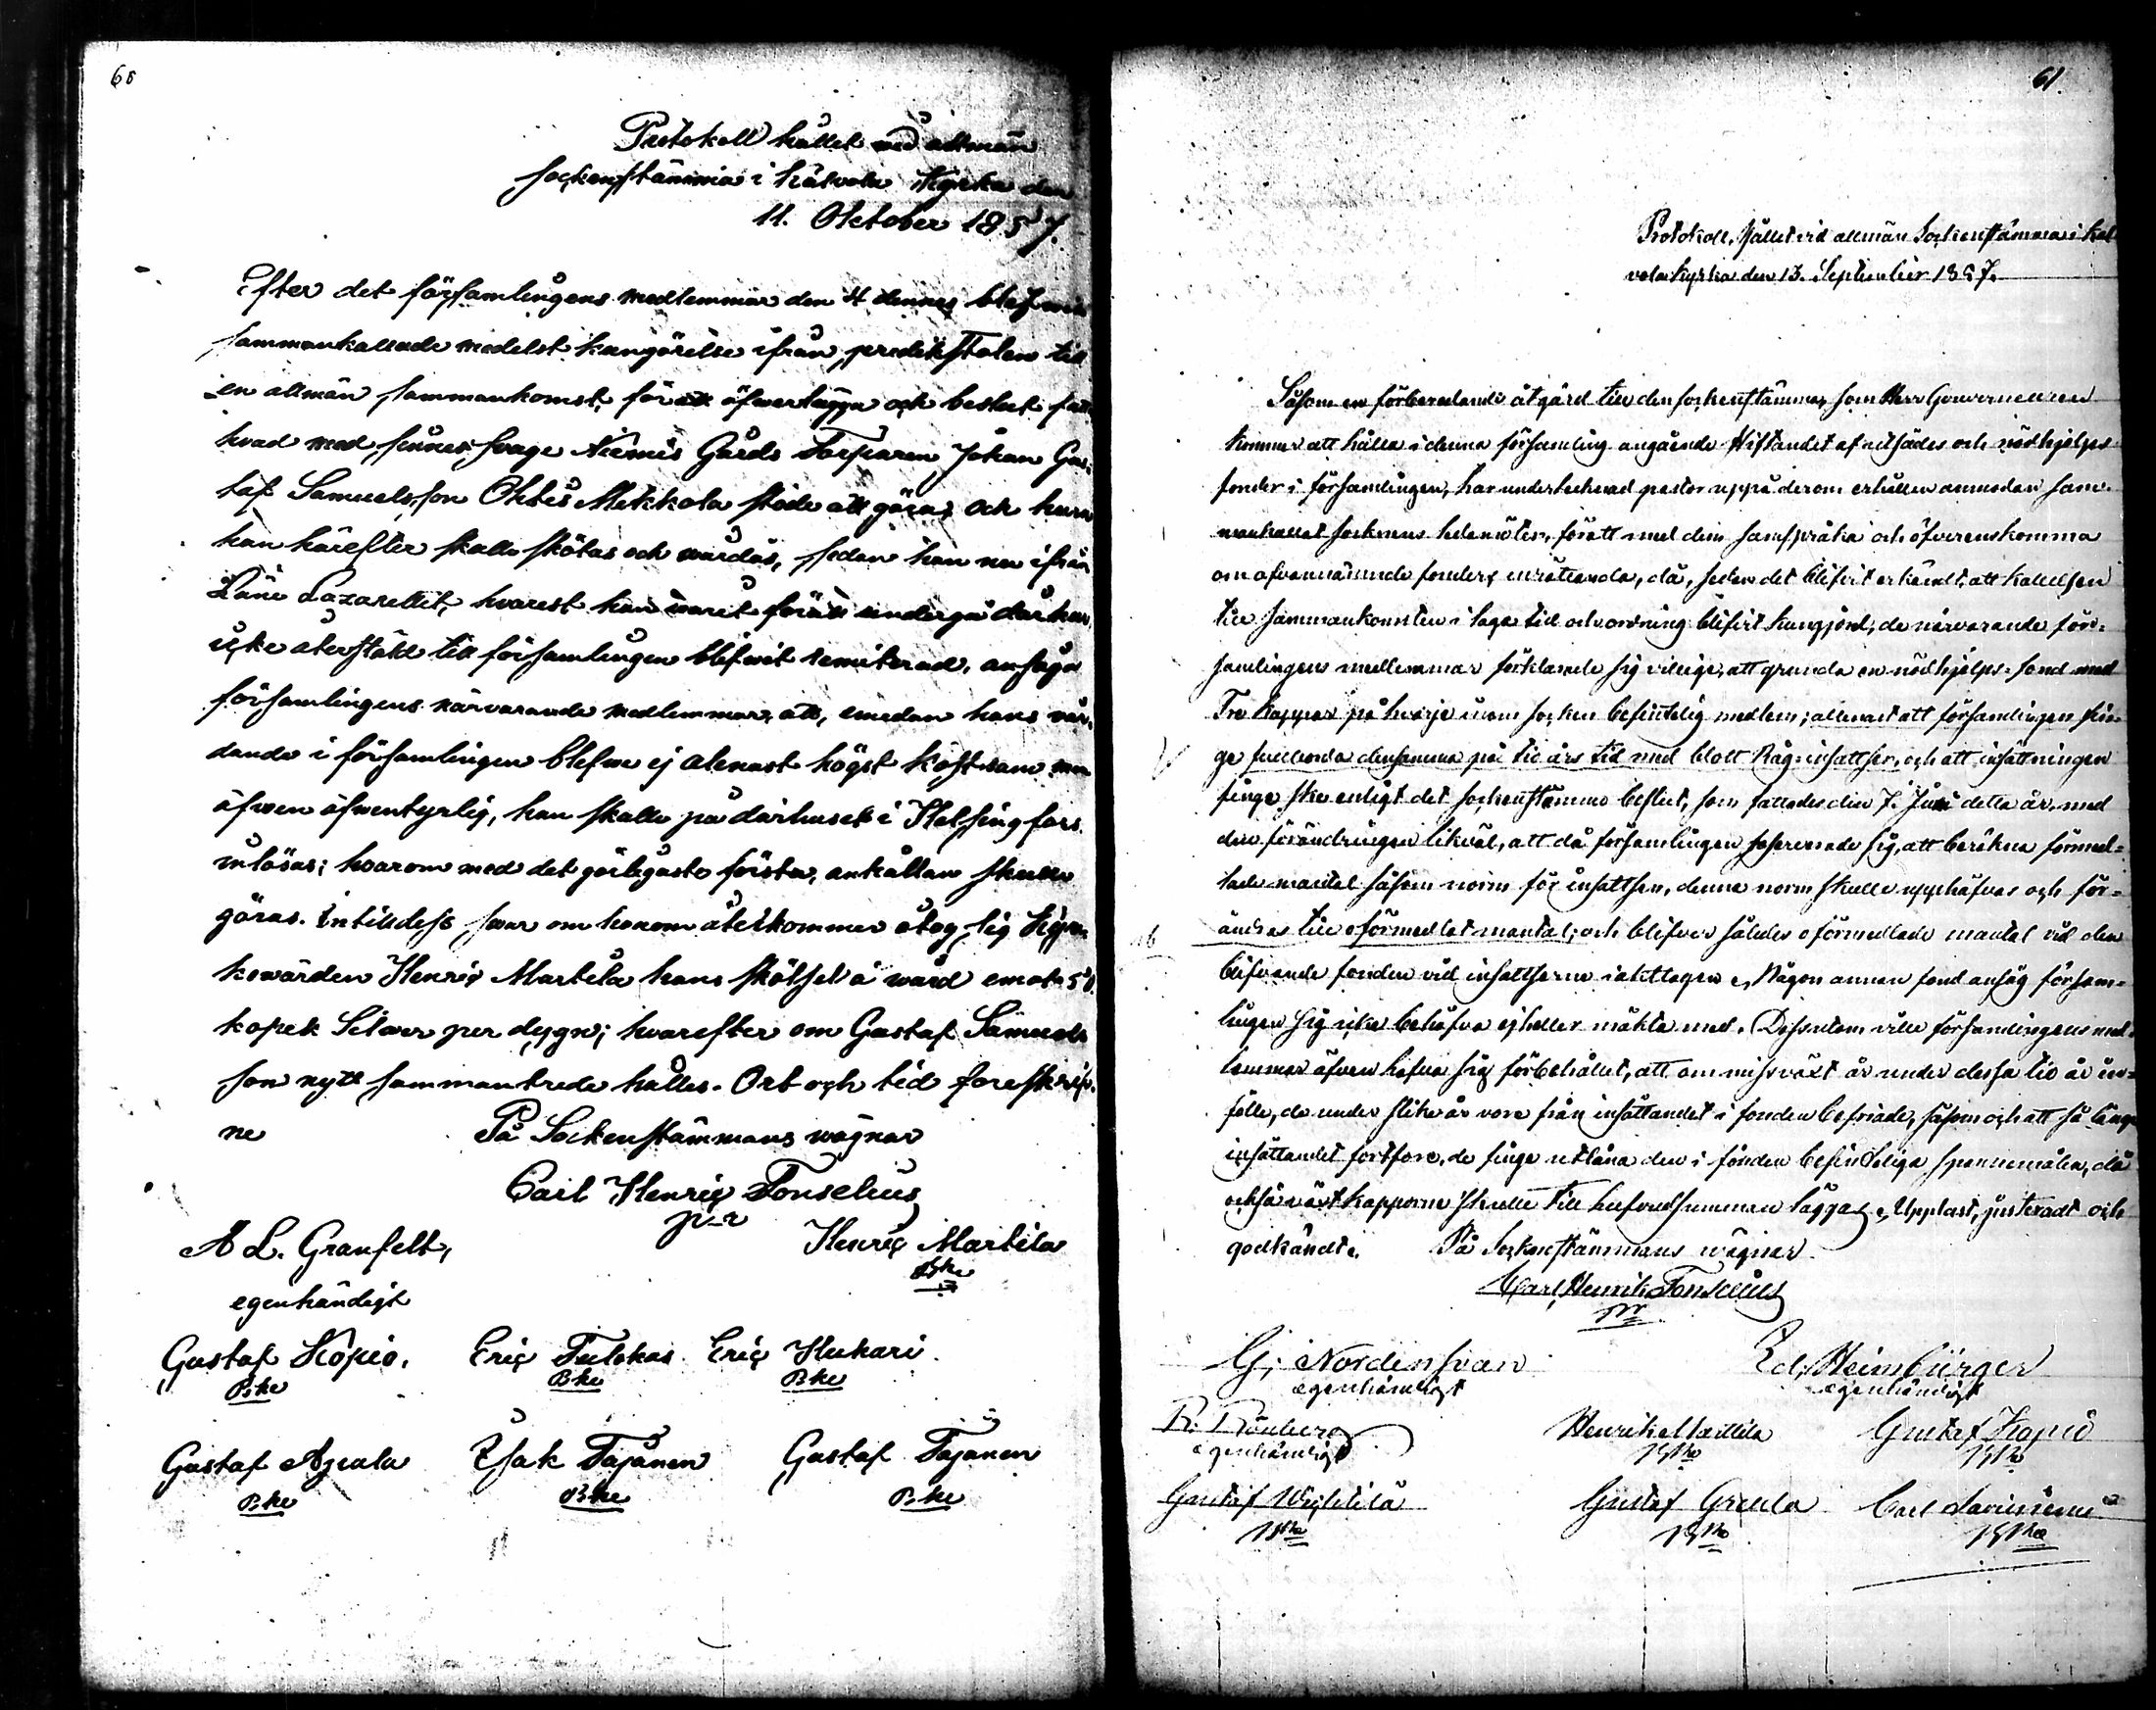 60
Protokoll hållet vid allmän
sockenstämma i Kalvola Kyrka den
11. Oktober 1857.
Efter det församlingens medlemmar den 4 dennes blifwit
sammankallade medelst kungörelse ifrån predikstolen till
en allmän sammankomst, för att öfwerlägga och beslut fatta
hvad med sinnes svage Niemis Gårds Torparen Johan Gus-
taf Samuelsson Ohtis Mekkola stode att göra, och huru
han härefter skulle skötas och wårdas, sedan han nu ifrån
Läne Lazarettet, hvarest han warit för att undergå darhus
icke återstäld till församlingen blifwit remiterad, ansågo
församlingens närvarande medlemmar, att, emedan hans vår-
dande i församlingen blefwe ej alenast högst kostsam utan
äfwen äfwentyrlig, han skulle på dårhuset i Helsingfors
inlösas; hvarom med det görligaste första, anhållan skulle
göras. Intilldess svar om honom återkommer åtog sig Kyr-
kowärden Henric Martila hans skötsel å wård emot 50.
kopek Silwer per dygn; hvarefter om Gustaf Samuels
son nytt sammanträde hålles. Ort och tid foreskrif-
ne På Sockenstämmans wägnar
Carl Henric Fonselius
p-r
A L. Granfelt, Henric Martila
egenhändigt Bke
Gustaf Kopio. Eric Tulokas Eric Hukari
Bke Bke Bke
Gustaf Agrala Isak Tajanen Gustaf Tajanen
Bke Bke Bke
61.
Protokoll, hållet vid allmän Sockenstämma i Kal
vola kyrka den 13. September 1857.
Såsom en förberedande åtgärd till den sockenstämma, som Herr Gouverneuren
kommer att hålla i denna församling angående stiftandet af utsädes och nödhjelps
fonder i församlingen, har undertecknad pastor uppå derom erhållen anmodan sam-
mankallat socknens ledamöter, för att med dem samspråka och öfverenskomma
om ofvannämnde fonders inrättande, då, sedan det blifvit erkändt, att kallelsen
till sammankomsten i laga tid och ordning blifvit kungjord, de närvarande för-
samlingens medlemmar förklarade sig villige, att grunda en nödhjelps-fond med
Tre kappar på hvarje inom socken befintelig medlem; allenast att församlingen fin-
ge fullborda densamma på tio års tid med blott Råg-insattser, och att insättningen
finge ske enligt det sockenstämmo beslut, som fattades den 7. Juni detta år, med
den förändringen likväl, att då församlingen reserverade sig, att beräkna förmed-
lade mantal såsom norm för insattsen, denna norm skulle upphäfvas och för-
ändras till oförmedlat mantal; och blifver således oförmedlade mantal vid den
blifvande fonden vid insattserne iakttagen. Någon annan fond ansåg försam-
lingen sig icke behöfva ej heller mäkta med. Dessutom ville församlingens med-
lemmar äfven hafva sig förbehållet, att om missväxt år under dessa tio år in-
fölle, de under slike år vore från insättandet i fonden befriade, såsom och att så länge
insättandet fortfore, de finge utlåna den i fonden befinteliga spannemålen, då
också växtkapparne skulle till hufvudsumman läggas. Upplast, justeradt och
godkändt. På Sockenstämmans wägnar
Carl Henrik Fonselius
pr
G; Nordensvan Ed. Heimbürger
egenhändigt egenhändigt
R. Rönberg Henrik Marttila Gustaf Kopio
egenhändigt
Gustaf Gustaf Carl Savinieme